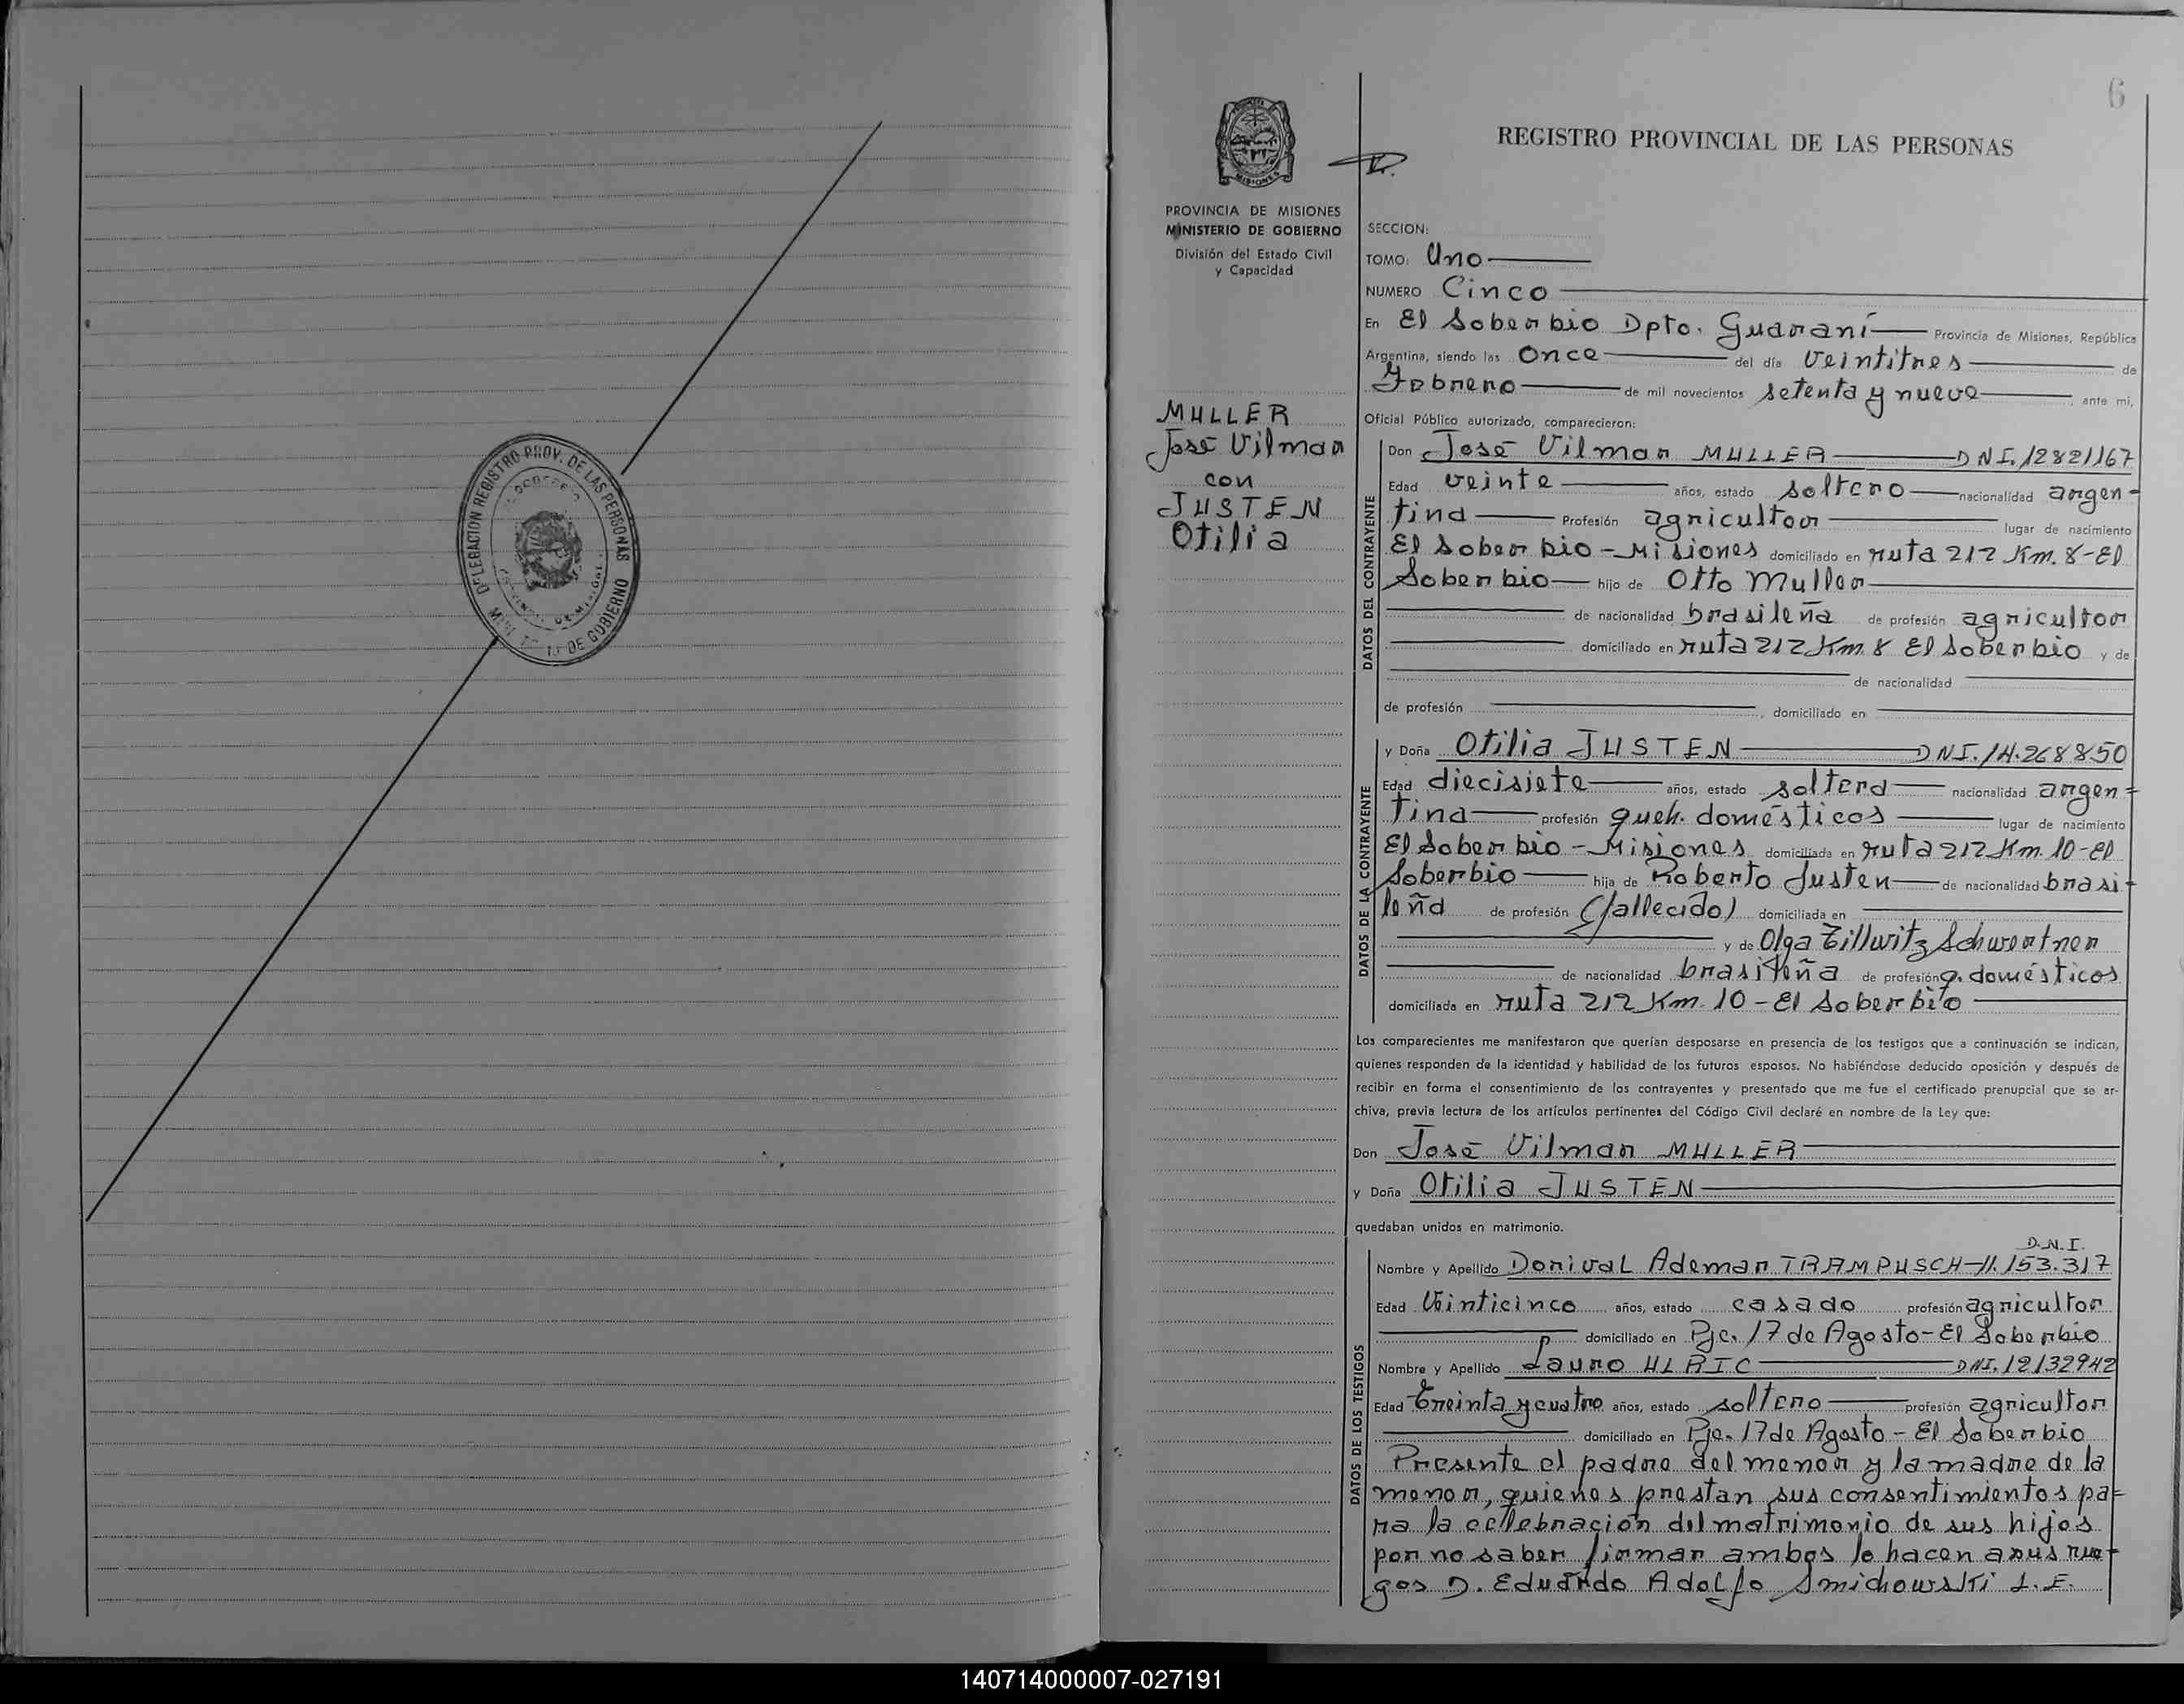 DELEGACION REGISTRO PROV. DE LAS PERSONAS
DE GOBIERNO
6
REGISTRO PROVINCIAL DE LAS PERSONAS
MISIONES
PROVINCIA DE MISIONES
MINISTERIO DE GOBIERNO
División del Estado Civil
y Capacidad
MULLER
José Vilmar
con
JUSTEN
Otilia
SECCION:
TOMO: Uno
NUMERO Cinco
En El Soberbio Dpto. Guaraní Provincia de Misiones, República
Argentina, siendo las Once del día Veintitres de
Febrero de mil novecientos setenta y nueve, ante mí,
Oficial Público autorizado, comparecieron:
DATOS DEL CONTRAYENTE
Don José Vilmar MULLER DNI. 12821167
Edad veinte años, estado soltero nacionalidad argen-
tina Profesión agricultor lugar de nacimiento
El Soberbio - Misiones domiciliado en ruta 212 Km. 8 - El
Soberbio hijo de Otto Muller
de nacionalidad brasileña de profesión agricultor
domiciliado en ruta 212 Km. 8 El Soberbio y de
de nacionalidad
de profesión , domiciliado en
DATOS DE LA CONTRAYENTE
y Doña Otilia JUSTEN DNI. 14.268850
Edad diecisiete años, estado soltera nacionalidad argen-
tina profesión queh. domésticos lugar de nacimiento
El Soberbio - Misiones domiciliada en ruta 212 Km. 10 - El
Soberbio hija de Roberto Justen de nacionalidad brasi-
leña de profesión (fallecido) domiciliada en
y de Olga Zillwitz Schwertner
de nacionalidad brasileña de profesión q. domésticos
domiciliada en ruta 212 Km. 10 - El Soberbio
Los comparecientes me manifestaron que querían desposarse en presencia de los testigos que a continuación se indican,
quienes responden de la identidad y habilidad de los futuros esposos. No habiéndose deducido oposición y después de
recibir en forma el consentimiento de los contrayentes y presentado que me fue el certificado prenupcial que se ar-
chiva, previa lectura de los artículos pertinentes del Código Civil declaré en nombre de la Ley que:
Don José Vilmar MULLER
y Doña Otilia JUSTEN
quedaban unidos en matrimonio.
DATOS DE LOS TESTIGOS
D.N.I.
Nombre y Apellido Dorival Ademar TRAMPUSCH - 11.153.317
Edad Veinticinco años, estado casado profesión agricultor
domiciliado en Pje. 17 de Agosto - El Soberbio
Nombre y Apellido Lauro ULRIC DNI. 12132942
Edad Treinta y cuatro años, estado soltero profesión agricultor
domiciliado en Pje. 17 de Agosto - El Soberbio
Presente el padre del menor y la madre de la
menor, quienes prestan sus consentimientos pa=
ra la cellebración del matrimonio de sus hijos
por no saber firmar ambos lo hacen a sus rue-
gos D. Eduardo Adolfo Smichowski L.E.
140714000007-027191